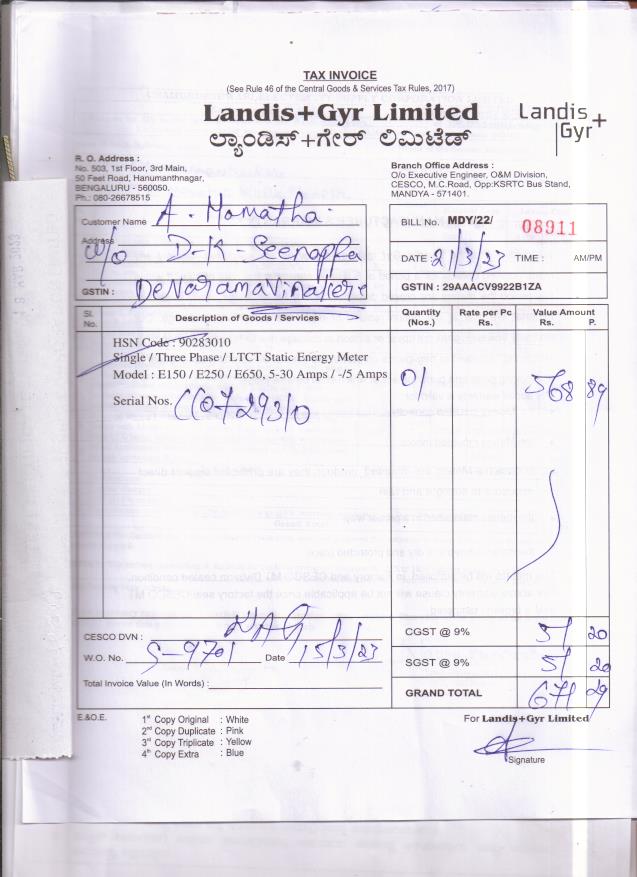 TAX INVOICE
(See Rule 46 of the Central Goods & Services Tax Rules, 2017)
Landis+Gyr Limited
ಲ್ಯಾಂಡಿಸ್+ಗೇರ್ ಲಿಮಿಟೆಡ್
Landis+
Gyr
R. O. Address :
No. 503, 1st Floor, 3rd Main,
50 Feet Road, Hanumanthnagar,
BENGALURU - 560050.
Ph.: 080-26678515
Branch Office Address :
O/o Executive Engineer, O&M Division,
CESCO, M.C.Road, Opp:KSRTC Bus Stand,
MANDYA - 571401.
Customer Name A. Mamatha
Address W/o D-K-Seenappa
GSTIN : Devaramavinakere
BILL No. MDY/22/ 08911
DATE : 21/3/23 TIME : AM/PM
GSTIN : 29AAACV9922B1ZA
Sl. No. Description of Goods / Services Quantity (Nos.) Rate per Pc Rs. Value Amount Rs. P.
HSN Code : 90283010
Single / Three Phase / LTCT Static Energy Meter
Model : E150 / E250 / E650, 5-30 Amps / -/5 Amps 01 568 89
Serial Nos. CC072930
CESCO DVN : NAG
W.O. No. S-9701 Date 15/3/23
Total Invoice Value (In Words) :
CGST @ 9% 51 20
SGST @ 9% 51 20
GRAND TOTAL 671 29
E.&O.E.
1st Copy Original : White
2nd Copy Duplicate : Pink
3rd Copy Triplicate : Yellow
4th Copy Extra : Blue
For Landis+Gyr Limited
Signature